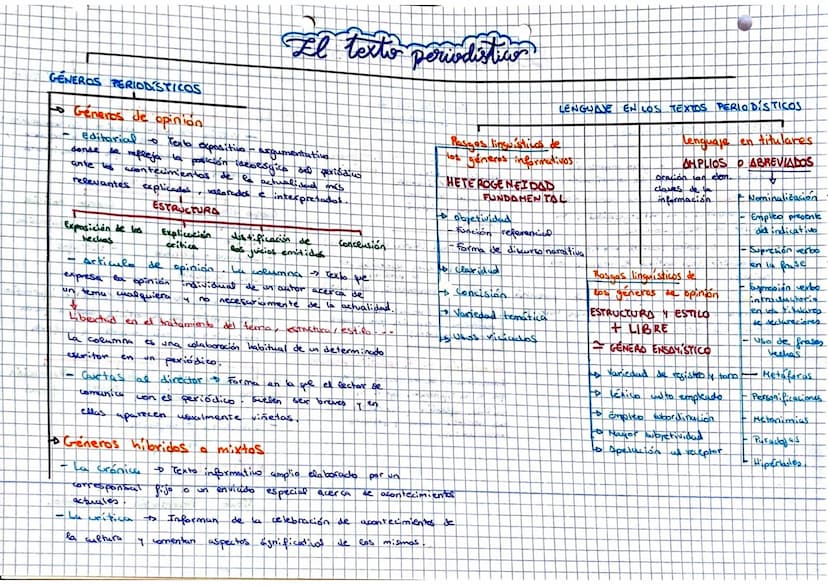 El texto periodístico
GÉNEROS PERIODÍSTICOS
→ Géneros de opinión
- Editorial → Texto expositivo - argumentativo
donde se refleja la posición ideológica del periódico
ante los acontecimientos de la actualidad más
relevantes explicados, valorados e interpretados.
ESTRUCTURA
Exposición de los hechos
Explicación crítica
Justificación de los juicios emitidos
Conclusión
- Artículo de opinión. La columna → Texto que
expresa la opinión individual de un autor acerca de
un tema cualquiera y no necesariamente de la actualidad.
Libertad en el tratamiento del tema, estructura, estilo...
La columna es una colaboración habitual de un determinado
escritor en un periódico.
- Cartas al director → Forma en la que el lector se
comunica con el periódico. Suelen ser breves y en
ellas aparecen usualmente viñetas.
→ Géneros híbridos o mixtos
- La crónica → Texto informativo amplio elaborado por un
corresponsal fijo o un enviado especial acerca de acontecimientos
actuales.
- La crítica → Informan de la celebración de acontecimientos de
la cultura y comentan aspectos significativos de los mismos.
LENGUAJE EN LOS TEXTOS PERIODÍSTICOS
Rasgos lingüísticos de
los géneros informativos
HETEROGENEIDAD
FUNDAMENTAL
→ Objetividad
- Función referencial
- Forma de discurso narrativa
→ Claridad
→ Concisión
→ Variedad temática
→ Usos viciados
Rasgos lingüísticos de
los géneros de opinión
ESTRUCTURA Y ESTILO
+ LIBRE
≃ GÉNERO ENSAYÍSTICO
→ Variedad de registro y tono
→ Léxico culto empleado
→ Empleo subordinación
→ Mayor subjetividad
→ Apelación al receptor
Lenguaje en titulares
AMPLIOS O ABREVIADOS
oración con elem.
claves de la
información
- Nominalización
- Empleo presente
del indicativo
- Supresión verbo
en la frase
- Supresión verbo
introductorio
en los titulares
de declaraciones
- Uso de frases
hechas
- Metáforas
- Personificaciones
- Metonimias
- Paradojas
- Hipérboles